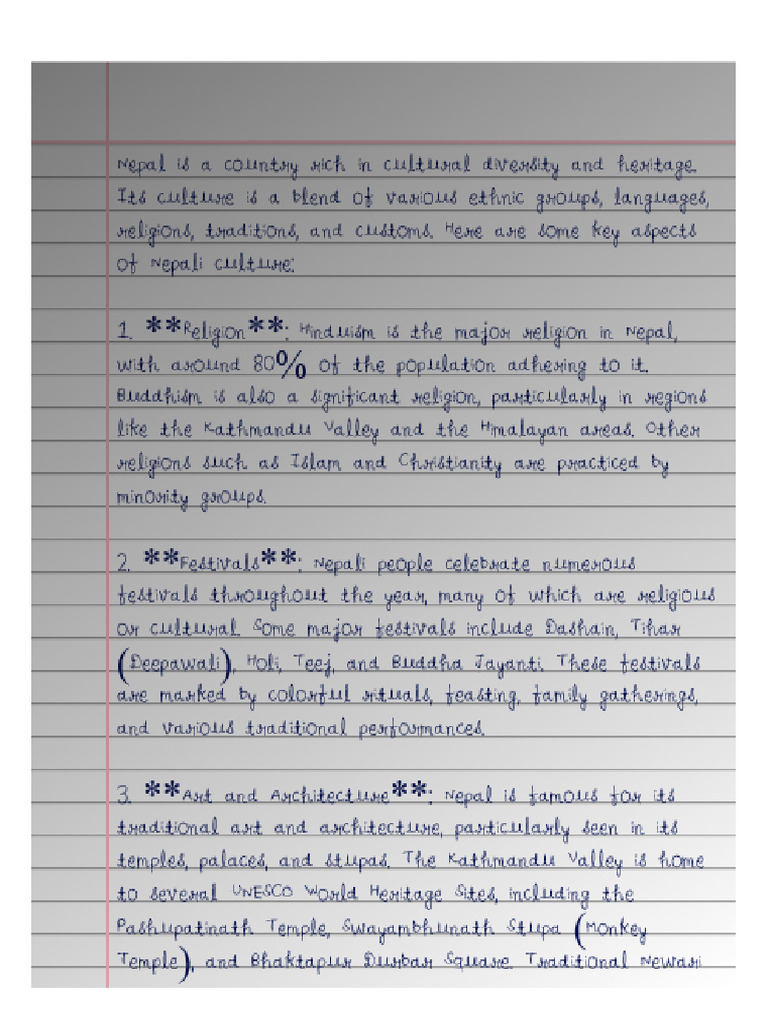 Nepal is a country rich in cultural diversity and heritage.
Its culture is a blend of various ethnic groups, languages,
religions, traditions, and customs. Here are some key aspects
of Nepali culture:
1. **Religion**: Hinduism is the major religion in Nepal,
with around 80% of the population adhering to it.
Buddhism is also a significant religion, particularly in regions
like the Kathmandu Valley and the Himalayan areas. Other
religions such as Islam and Christianity are practiced by
minority groups.
2. **Festivals**: Nepali people celebrate numerous
festivals throughout the year, many of which are religious
or cultural. Some major festivals include Dashain, Tihar
(Deepawali), Holi, Teej, and Buddha Jayanti. These festivals
are marked by colorful rituals, feasting, family gatherings,
and various traditional performances.
3. **Art and Architecture**: Nepal is famous for its
traditional art and architecture, particularly seen in its
temples, palaces, and stupas. The Kathmandu Valley is home
to several UNESCO World Heritage Sites, including the
Pashupatinath Temple, Swayambhunath Stupa (Monkey
Temple), and Bhaktapur Durbar Square. Traditional Newari